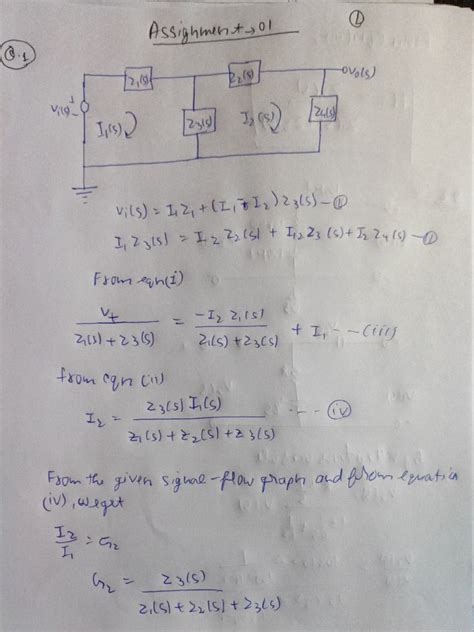 ①
Assignment → 01
Q.1
Z₁(s) Z₂(s) oV₀(s)
Vi(s) + - I₁(s) Z₃(s) I₂(s) Z₄(s)
Vi(s) = I₁Z₁ + (I₁ - I₂) Z₃(s) — ①
I₁ Z₃(s) = I₂ Z₂(s) + I₂ Z₃(s) + I₂ Z₄(s) — ⑪
From eqn(i)
V₊ / Z₁(s) + Z₃(s) = -I₂ Z₁(s) / Z₁(s) + Z₃(s) + I₁ -- (iii)
from eqn (ii)
I₂ = Z₃(s) I₁(s) / Z₁(s) + Z₂(s) + Z₃(s) --- (iv)
From the given signal-flow graph and from equation
(iv), we get
I₂ / I₁ = G₂
G₂ = Z₃(s) / Z₁(s) + Z₂(s) + Z₃(s)